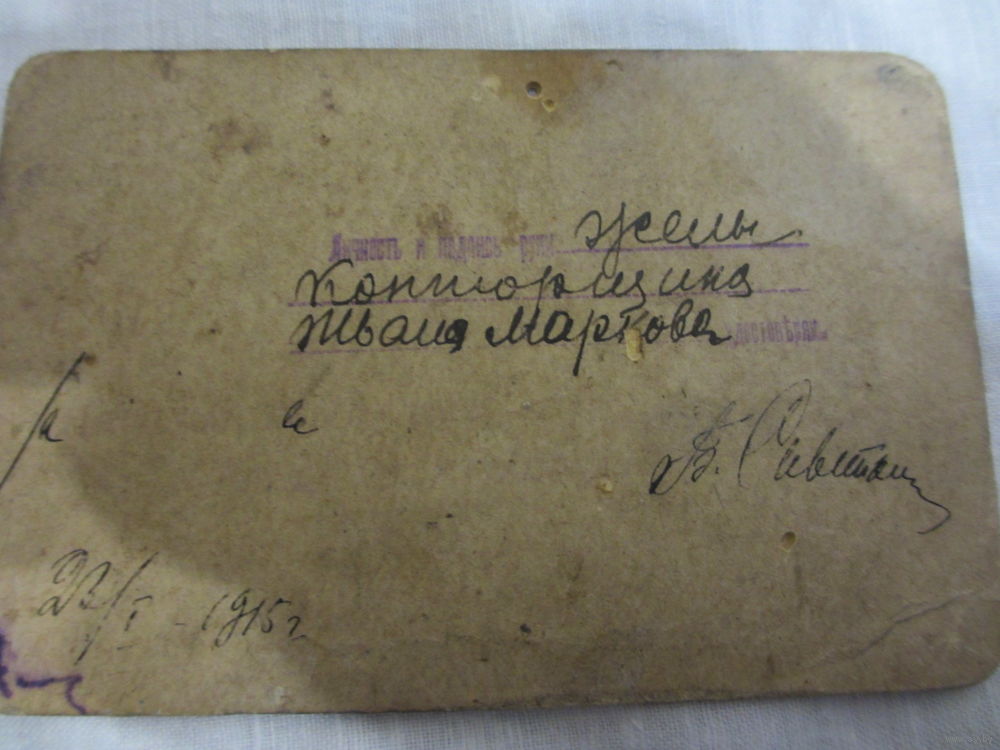 Личность и подпись руки жены
Конторщика
Ивана Маркова удостовѣряю
за
23/I - 1915 г